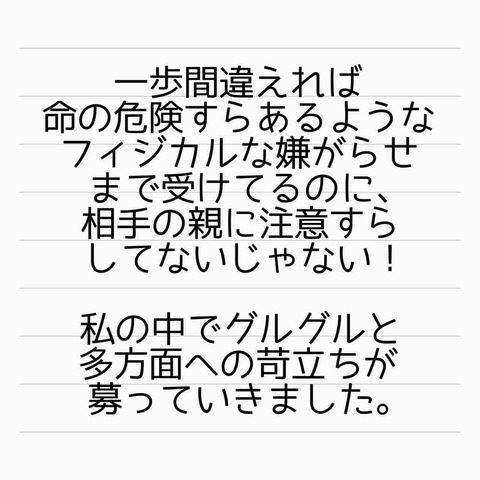 一歩間違えれば
命の危険すらあるような
フィジカルな嫌がらせ
まで受けてるのに、
相手の親に注意すら
してないじゃない！
私の中でグルグルと
多方面への苛立ちが
募っていきました。